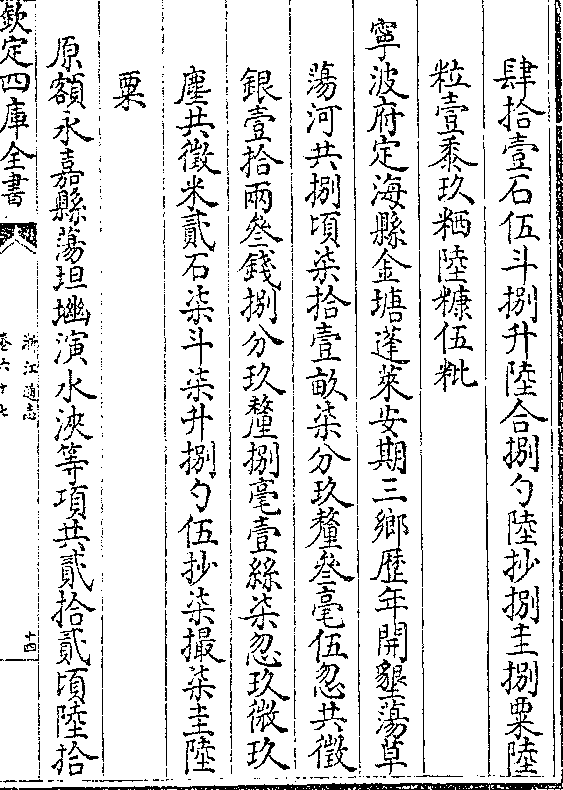 肆拾壹石伍斗捌升陸合捌勺陸抄捌圭捌粟陸
粒壹黍玖粞陸糠伍粃
寧波府定海縣金塘蓬萊安期三鄉歴年開墾蕩草
蕩河共捌頃柒拾壹畝柒分玖釐叄毫伍忽共徵
銀壹拾兩叄錢捌分玖釐捌毫壹絲柒忽玖微玖
塵共徵米貳石柒斗柒升捌勺伍抄柒撮柒圭陸
粟
原額永嘉縣蕩坦塯演水浹等項共貳拾貳頃陸拾
欽定四庫全書
浙江通志
卷六十七
十四